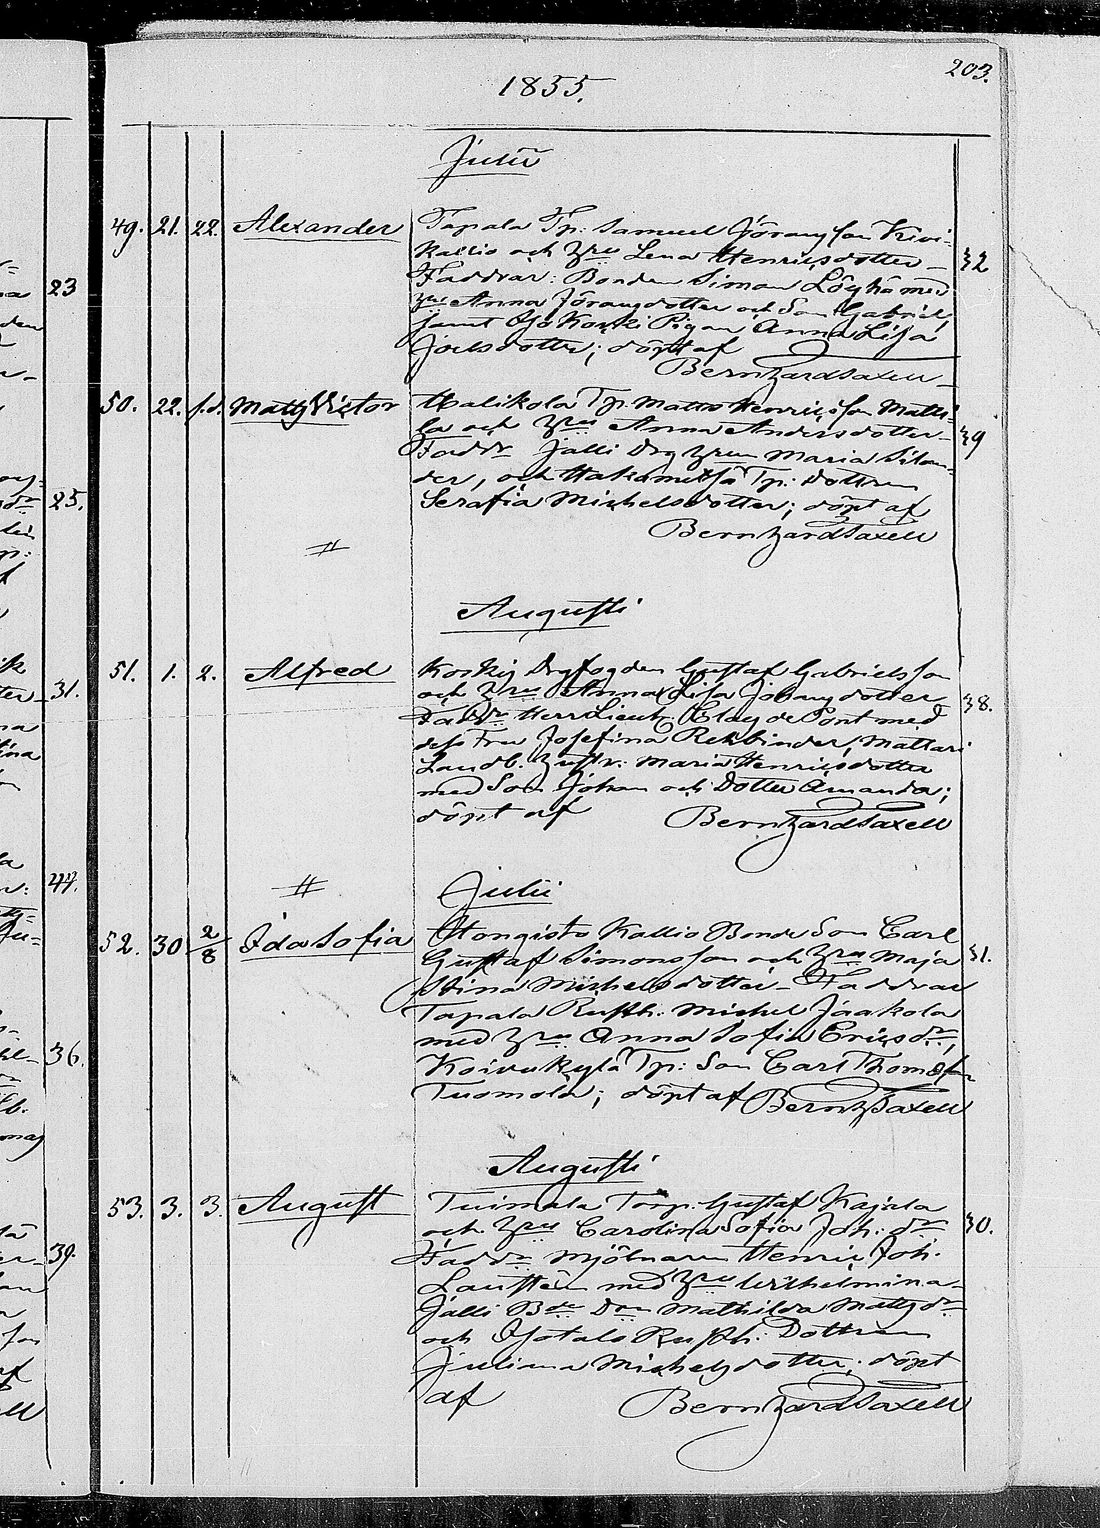 203.
1855.
Julii
49. 21. 22. Alexander Tapala Tp: Samuel Jöransson Kivi-
kallio och Hru Lena Henricsdotter 32
Faddrar: Bonden Simon Löyhä med
Hru Anna Jöransdotter och Son Gabriel,
jemt Pigan Anna Lisa
Joelsdotter; döpt af
Bernhard Taxell
50. 22. s.d. Matts Victor Halikola Tp. Matts Henricsson Matti-
la och Hru Anna Andersdotter 39
Faddr Jalli Drg Hrun Maria Silan-
der, och Tp: Dottren
Serafia Michelsdotter; döpt af
Bernhard Taxell
Augusti
51. 1. 2. Alfred Koskis Drgfogden Gustaf Gabrielsson
och Hru Anna Lisa Johansdotter 38.
Faddr Herr Lieutn. Clas de Pont med
dess Fru Josefina Rehbinder, Mattari
Landb. Hustr: Maria Henricsdotter
med Son Johan och Dotter Amanda;
döpt af Bernhard Taxell
Julii
52. 30 2/8 Ida Sofia Hongisto Kallio Bonde Son Carl
Gustaf Simonsson och Hru Maja 31.
Stina Michelsdotter Faddrar
Tapala Rusth. Michel Jaakola
med Hru Anna Sofia Ericsdr,
Koivukylä Tp: Son Carl Thomasson
Tuomola; döpt af Bernh Taxell
Augusti
53. 3. 3. August Tuimala Torp. Gustaf Kajala
och Hru Carolina Sofia Joh: dr 30.
Faddr Mjölnaren Henric Joh.
Laustén med Hru Wilhelmina
Jalli Bde Drn Mathilda Mattsdr
och Isotalo Rusth. Dottren
Juliana Michelsdotter; döpt
af Bernhard Taxell
23
25.
31.
44.
36.
39.